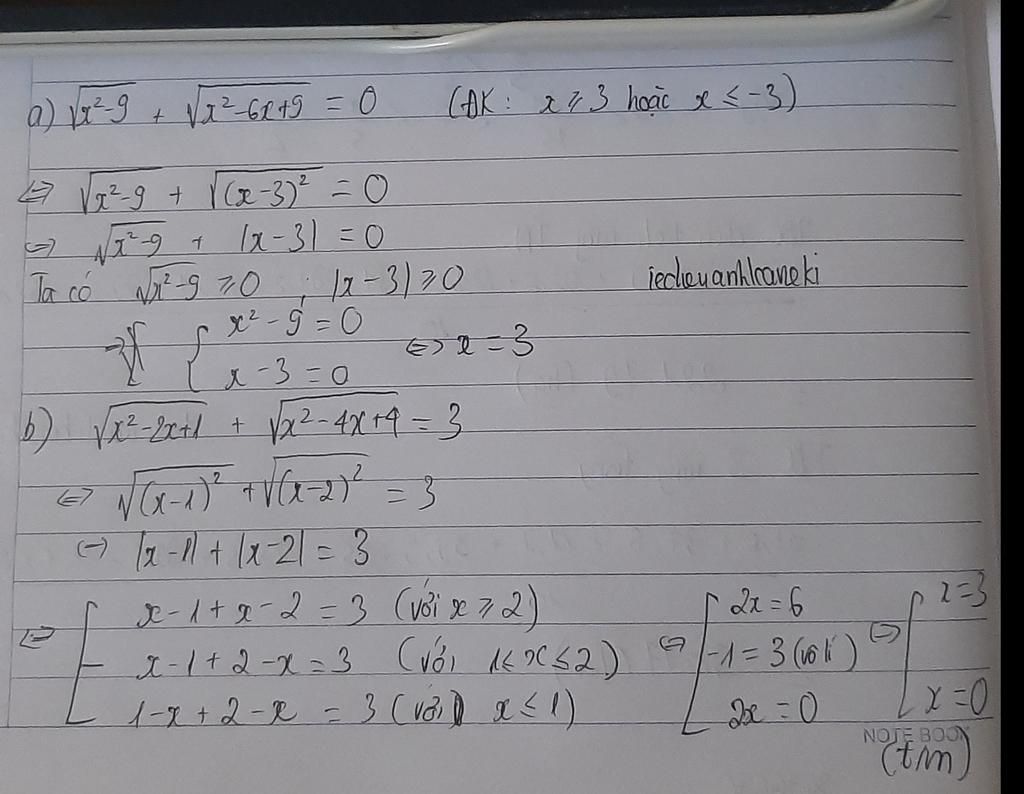 a) √(x²-9) + √(x²-6x+9) = 0 (ĐK: x ≥ 3 hoặc x ≤ -3)
⇔ √(x²-9) + √((x-3)²) = 0
⇔ √(x²-9) + |x-3| = 0
Ta có √(x²-9) ≥ 0 ; |x-3| ≥ 0 iecheuanhloaneki
⇒ { x² - 9 = 0
x - 3 = 0 ⇔ x = 3
b) √(x²-2x+1) + √(x²-4x+4) = 3
⇔ √((x-1)²) + √((x-2)²) = 3
⇔ |x-1| + |x-2| = 3
⇔ [ x-1+x-2 = 3 (với x ≥ 2) ⇔ [ 2x = 6 ⇔ [ x = 3
x-1+2-x = 3 (với 1 ≤ x ≤ 2) -1 = 3 (vô lí)
1-x+2-x = 3 (với x ≤ 1) 2x = 0 x = 0
NOTE BOOK
(t/m)